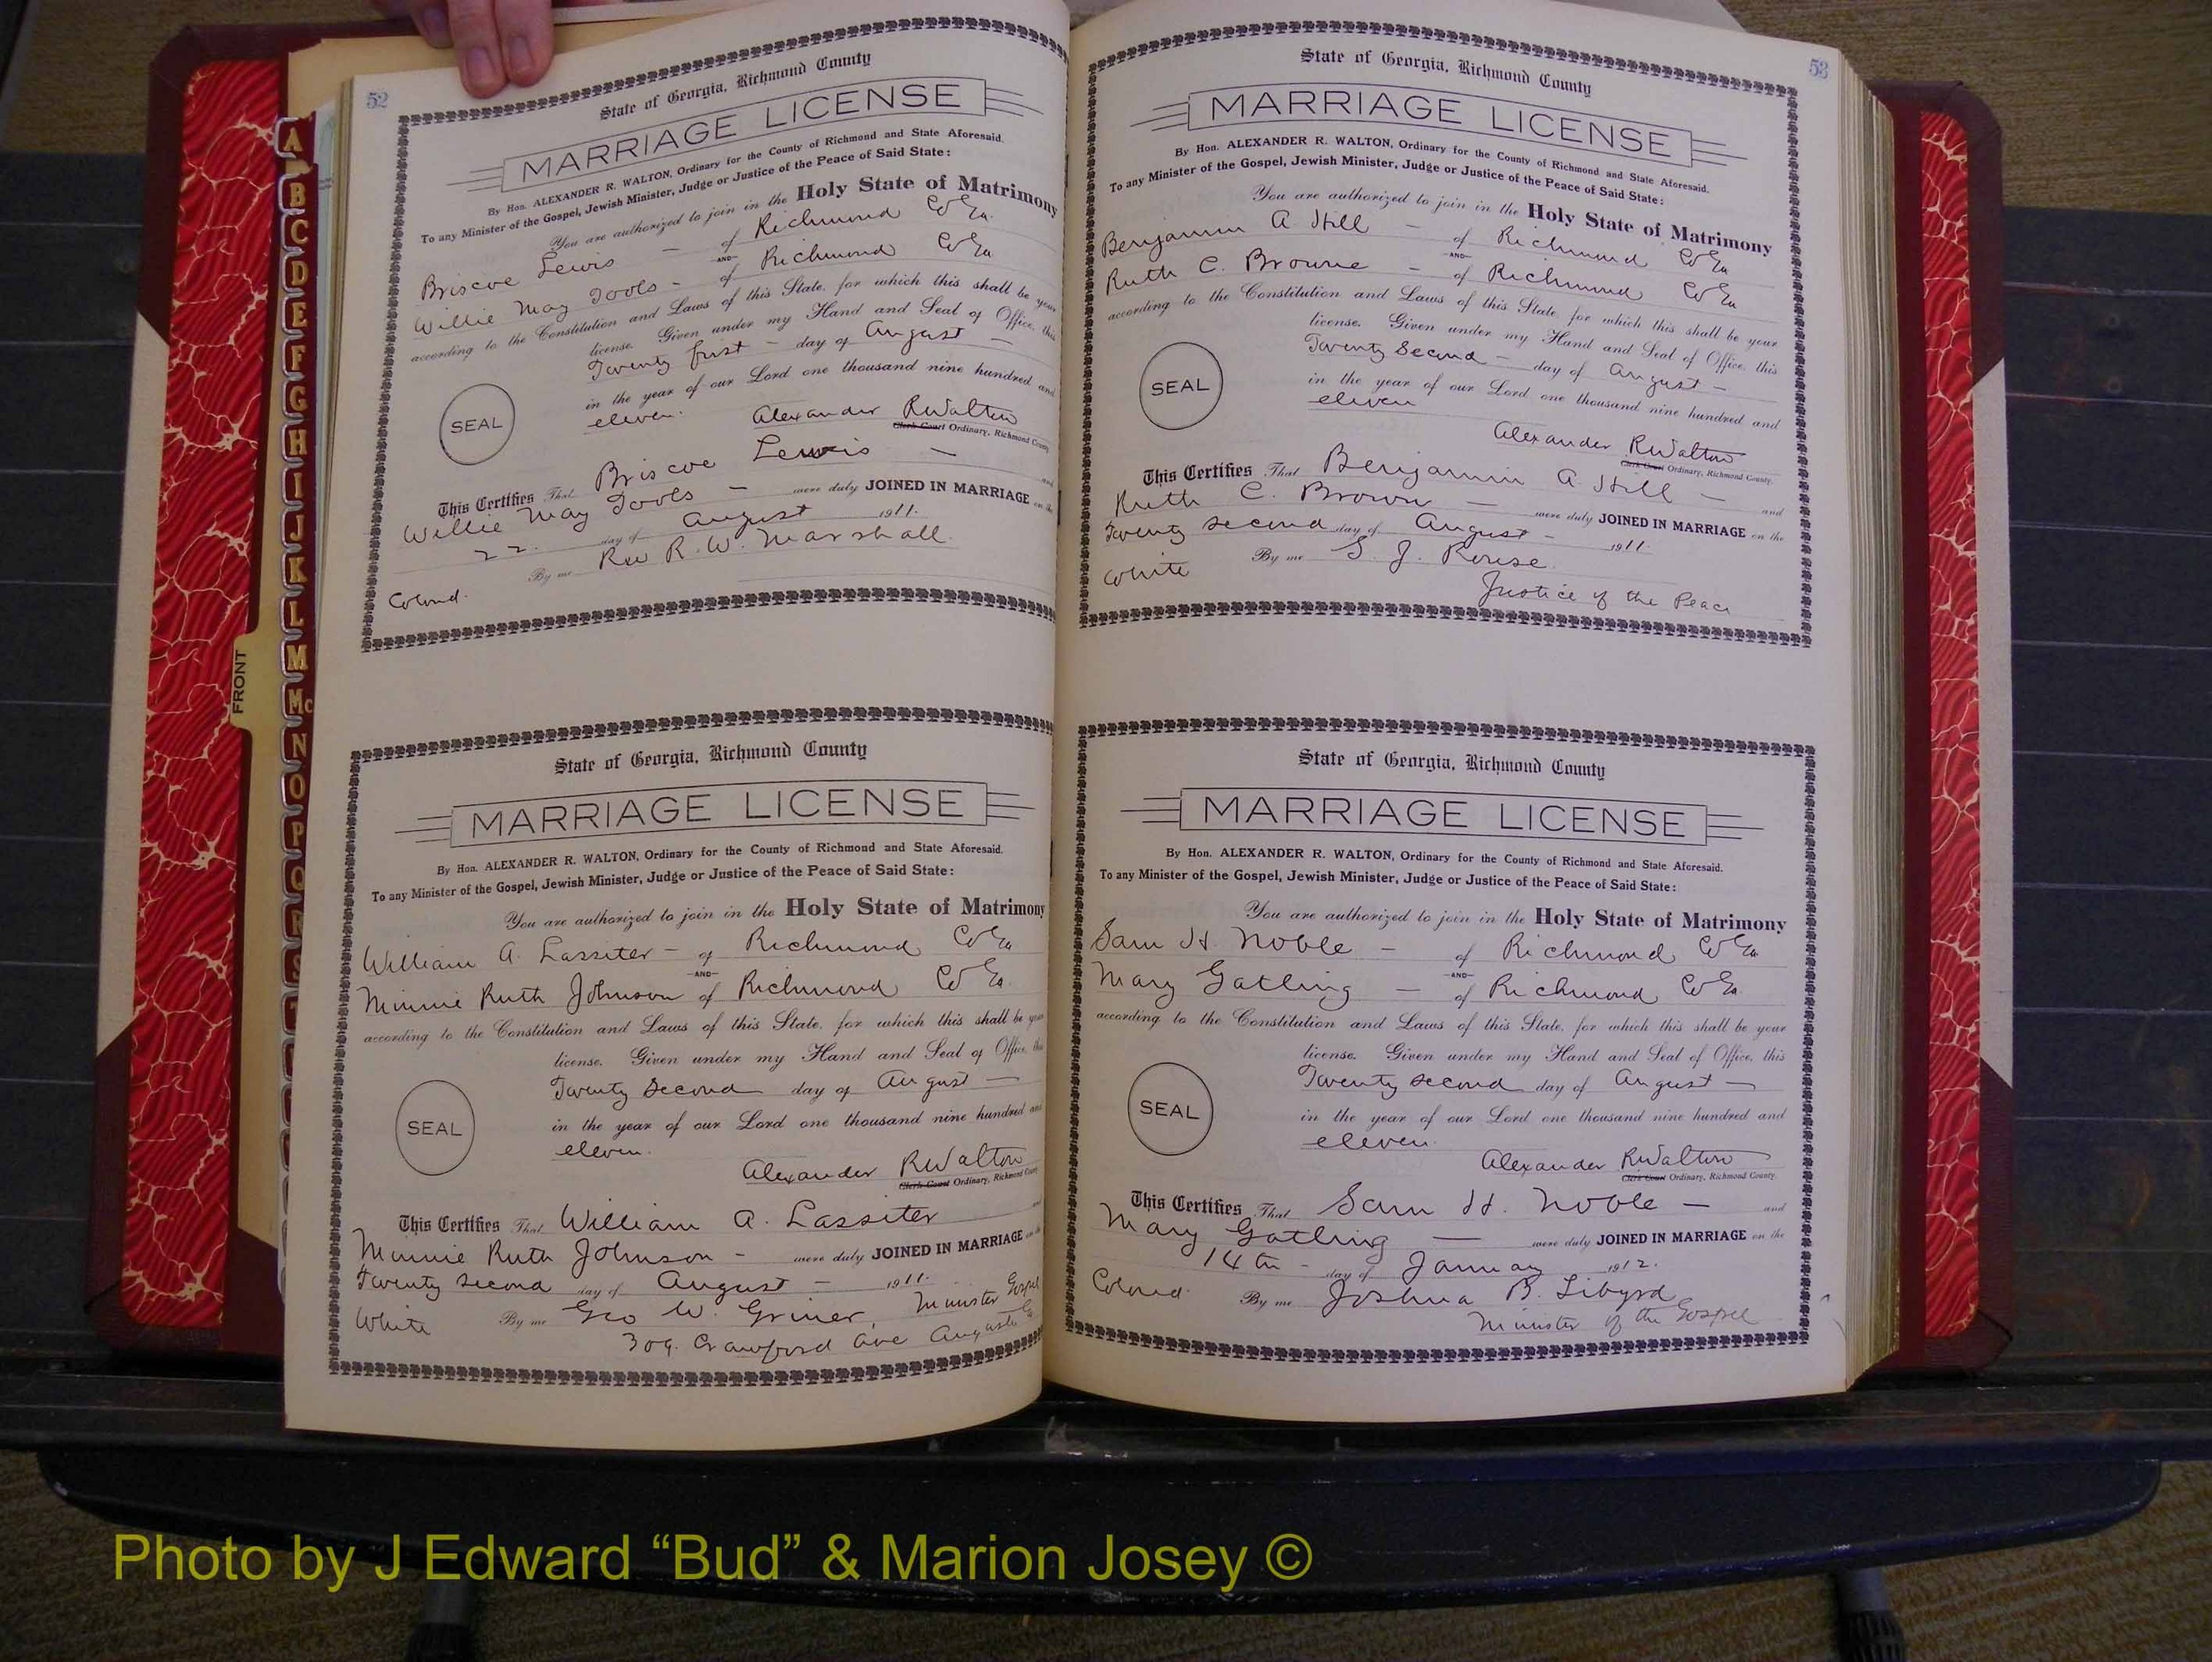 52
State of Georgia, Richmond County
MARRIAGE LICENSE
By Hon. ALEXANDER R. WALTON, Ordinary for the County of Richmond and State Aforesaid.
To any Minister of the Gospel, Jewish Minister, Judge or Justice of the Peace of Said State:
You are authorized to join in the Holy State of Matrimony
Briscoe Lewis - of Richmond Co Ga.
AND
Willie May Tools - of Richmond Co Ga
according to the Constitution and Laws of this State, for which this shall be your
license. Given under my Hand and Seal of Office, this
Twenty first - day of August -
in the year of our Lord one thousand nine hundred and
SEAL
eleven. Alexander R Walton
Clerk Court Ordinary, Richmond County
This Certifies That Briscoe Lewis - and
Willie May Tools - were duly JOINED IN MARRIAGE on the
22. day of August 1911.
By me Rev R. W. Marshall.
Colored.
State of Georgia, Richmond County
MARRIAGE LICENSE
By Hon. ALEXANDER R. WALTON, Ordinary for the County of Richmond and State Aforesaid.
To any Minister of the Gospel, Jewish Minister, Judge or Justice of the Peace of Said State:
You are authorized to join in the Holy State of Matrimony
William A. Lassiter - of Richmond Co Ga
AND
Minnie Ruth Johnson of Richmond Co Ga.
according to the Constitution and Laws of this State, for which this shall be your
license. Given under my Hand and Seal of Office, this
Twenty Second day of August -
SEAL
in the year of our Lord one thousand nine hundred and
eleven.
Alexander R Walton
Clerk Court Ordinary, Richmond County
This Certifies That William A. Lassiter and
Minnie Ruth Johnson - were duly JOINED IN MARRIAGE on the
Twenty Second day of August - 1911.
White By me Geo W. Griner, Minister Gospel
309. Crawford Ave Augusta Ga
53
State of Georgia, Richmond County
MARRIAGE LICENSE
By Hon. ALEXANDER R. WALTON, Ordinary for the County of Richmond and State Aforesaid.
To any Minister of the Gospel, Jewish Minister, Judge or Justice of the Peace of Said State:
You are authorized to join in the Holy State of Matrimony
Benjamin A Hill - of Richmond Co Ga
AND
Ruth C. Browne - of Richmond Co Ga
according to the Constitution and Laws of this State, for which this shall be your
license. Given under my Hand and Seal of Office, this
Twenty Second - day of August -
SEAL
in the year of our Lord one thousand nine hundred and
eleven
Alexander R Walton
Clerk Court Ordinary, Richmond County.
This Certifies That Benjamin A Hill - and
Ruth C. Brown - were duly JOINED IN MARRIAGE on the
Twenty second day of August - 1911.
White By me S. J. Rouse.
Justice of the Peace
State of Georgia, Richmond County
MARRIAGE LICENSE
By Hon. ALEXANDER R. WALTON, Ordinary for the County of Richmond and State Aforesaid.
To any Minister of the Gospel, Jewish Minister, Judge or Justice of the Peace of Said State:
You are authorized to join in the Holy State of Matrimony
Sam H. Noble - of Richmond Co Ga
AND
Mary Gatling - of Richmond Co Ga.
according to the Constitution and Laws of this State, for which this shall be your
license. Given under my Hand and Seal of Office, this
Twenty second day of August -
SEAL
in the year of our Lord one thousand nine hundred and
eleven.
Alexander R Walton
Clerk Court Ordinary, Richmond County.
This Certifies That Sam H. Noble - and
Mary Gatling - were duly JOINED IN MARRIAGE on the
14th - day of January 1912.
Colored. By me Joshua B. Libyrd
Minister of the Gospel
FRONT
A
B
C
D
E
F
G
H
I
J
K
L
M
Mc
N
O
P
Q
R
S
Photo by J Edward “Bud” & Marion Josey ©